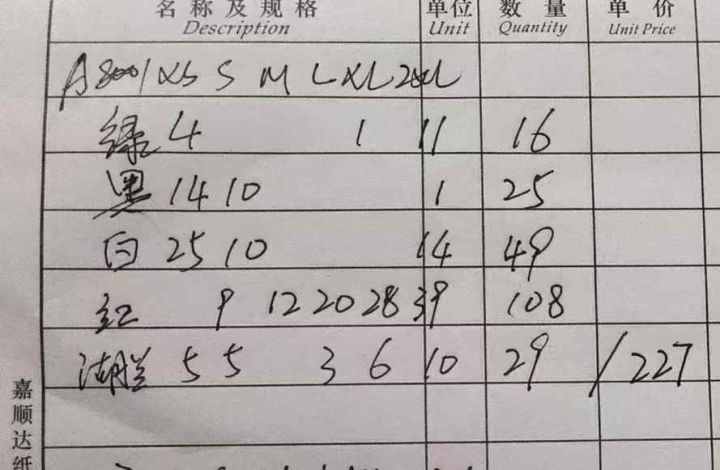 名称及规格 单位 数量 单价
Description Unit Quantity Unit Price
A8001 XS S M L XL 2XL
绿 4 1 11 16
黑 14 10 1 25
白 25 10 14 49
红 9 12 20 28 39 108
湖兰 5 5 3 6 10 29 / 227
嘉顺达纸